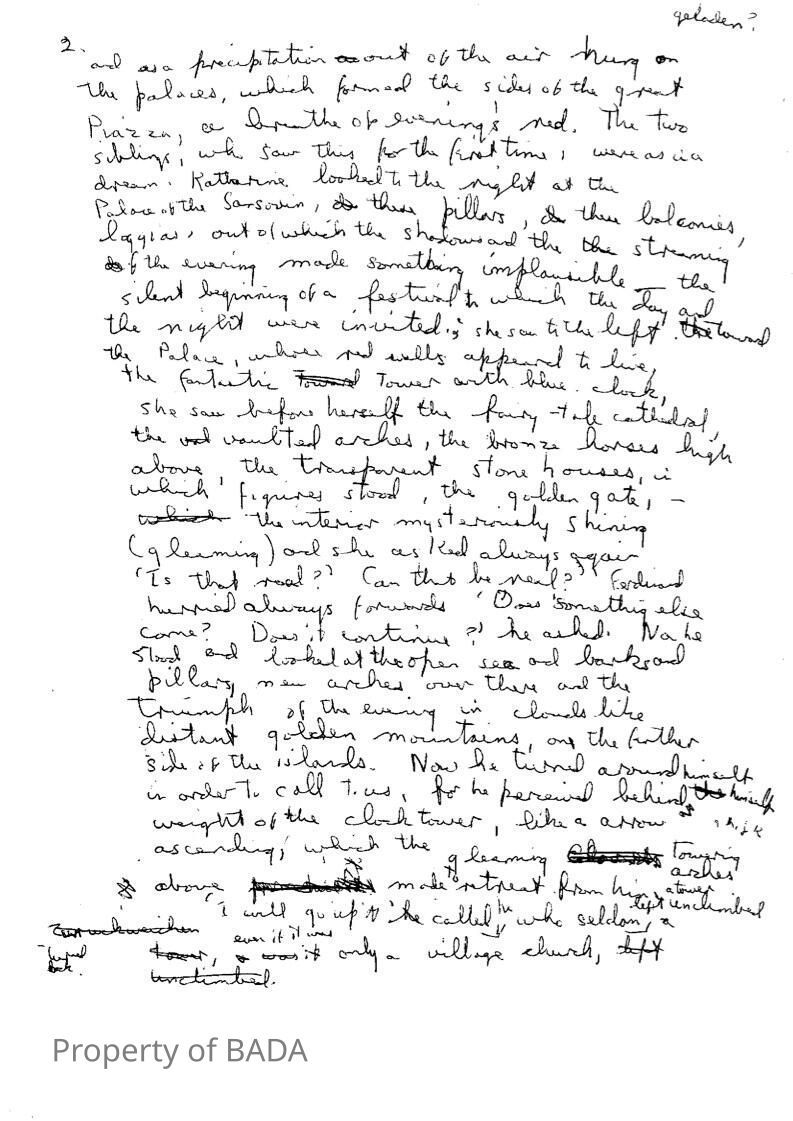 geladen?
2.
and as a precipitation out of the air hung on
the palaces, which formed the sides of the great
Piazza, a breathe of evening's red. The two
siblings, who saw this for the first time, were as in a
dream. Katharine looked to the right at the
Palace of the Sansovin, these pillars, these balconies,
loggias, out of which the shadows and the the streaming
of the evening made something implausible — the
silent beginning of a festival to which the day and
the night were invited; she saw to the left. toward
the Palace, whose red walls appeared to live,
the fantastic Toward Tower with blue clock,
she saw before herself the fairy-tale cathedral,
the vaulted arches, the bronze horses high
above, the transparent stone houses, in
which figures stood, the golden gate, —
which the interior mysteriously shining
(gleaming) and she asked always again
'Is that real?' Can that be real?' Ferdinand
hurried always forwards 'Does something else
come? Does it continue?' he asked. Now he
stood and looked at the open sea and banks and
pillars, new arches over there and the
triumph of the evening in clouds like
distant golden mountains, on the further
side of the islands. Now he turned around himself
in order to call to us, for he perceived behind himself
weight of the clock tower, like a arrow
ascending, which the gleaming towering
arches
above made to retreat from him,
'I will go up it' he called, who seldom, a tower
left unclimbed
Zurückweichen
even if it was
turned back.
tower, was it only a village church, left
unclimbed.
Property of BADA